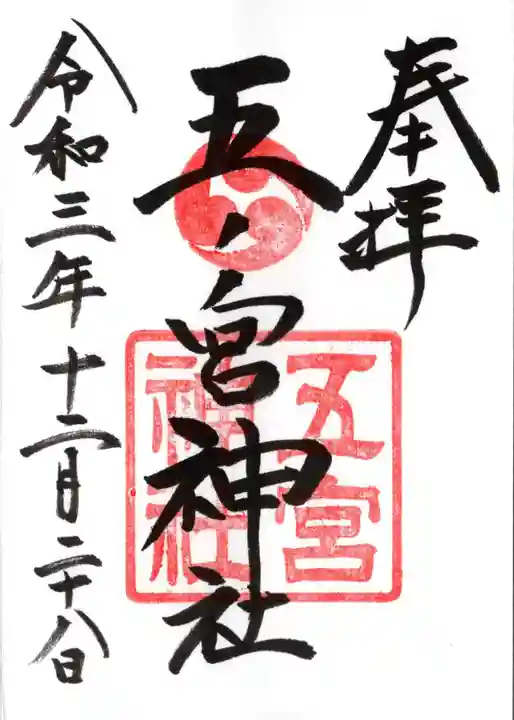 奉拝
五ノ宮神社
五宮
神社
令和三年十二月二十八日